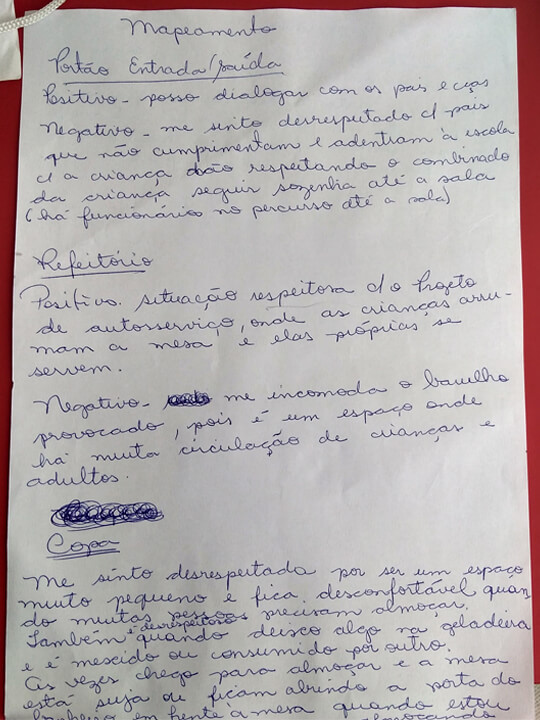 Mapeamento
Portão Entrada/saída
Positivo - posso dialogar com os pais e cças
Negativo - me sinto desrespeitado c/ pais
que não cumprimentam e adentram à escola
c/ a criança não respeitando o combinado
da criança seguir sozinha até a sala
(há funcionários no percurso até a sala)
Refeitório
Positivo. situação respeitora c/o Projeto
de autosserviço, onde as crianças arru-
mam a mesa e elas próprias se
servem.
Negativo - me incomoda o barulho
provocado, pois é um espaço onde
há muita circulação de crianças e
adultos.
Copa
Me sinto desrespeitada por ser um espaço
muito pequeno e fica desconfortável quan
do muitas pessoas precisam almoçar.
Também é desrespeitoso quando deixo algo na geladeira
e é mexido ou consumido por outro.
As vezes chego para almoçar e a mesa
está suja ou ficam abrindo a porta do
banheiro em frente à mesa quando estou